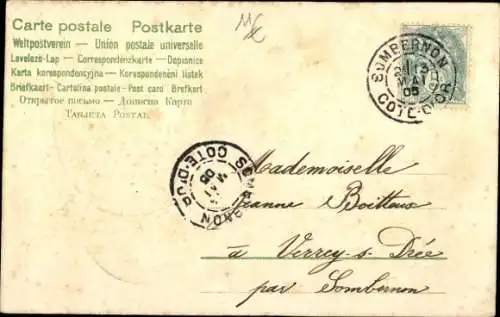 Carte postale Postkarte
Weltpostverein — Union postale universelle
Levelező-Lap — Correspondenzkarte — Dopisnice
Karta korespondencyjna — Korespondenční lístek
Briefkaart - Cartolina postale - Post card Brefkort
Открытое письмо — Дописна Карта
Tarjeta Postal
SOMBERNON
MAI
05
COTE-D'OR
COTE-D'OR
MAI
05
Mademoiselle
Jeanne Boitteux
à Verrey-s-Drée
par Sombernon